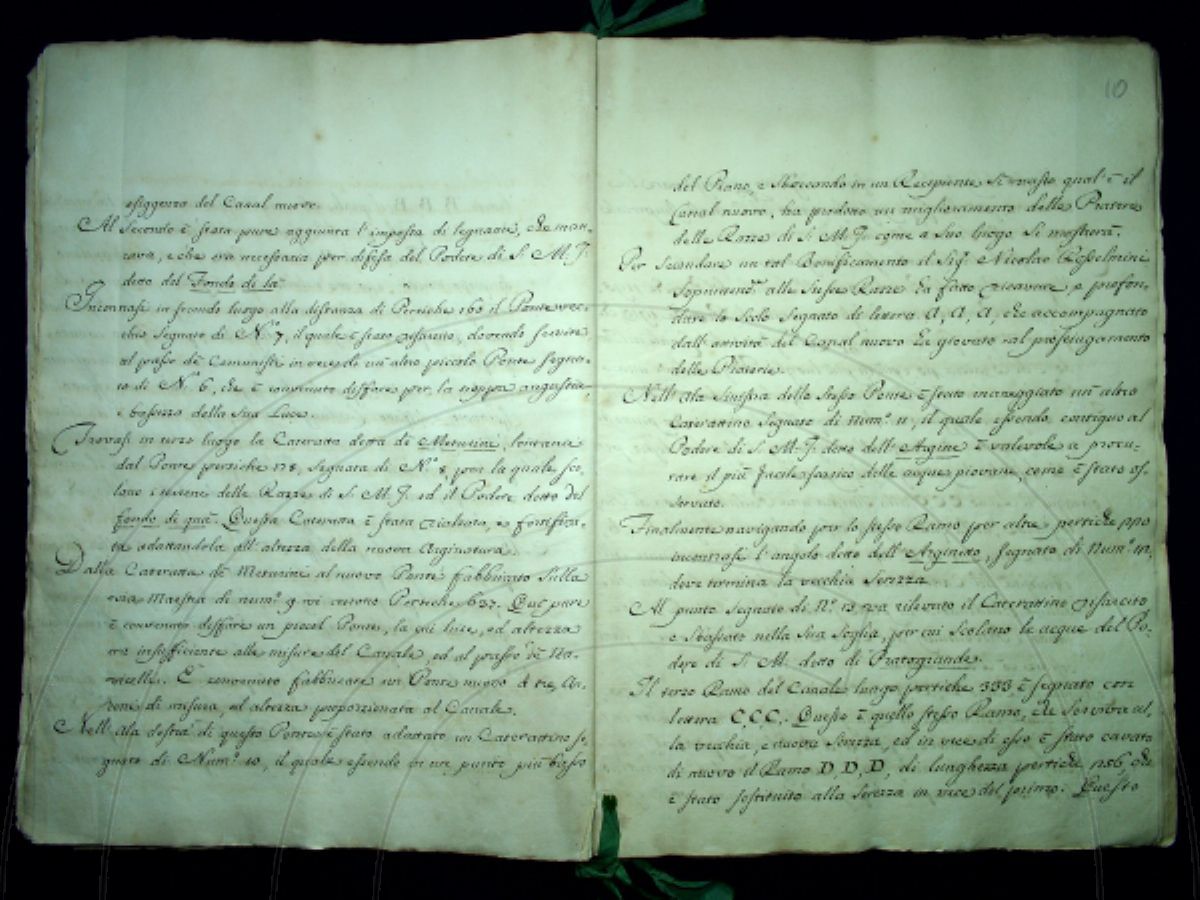 esiggenza del Canal nuovo.
Al Secondo è stata pure aggiunta l'imposta di legname, che man-
cava, e che era necessaria per difesa del Podere di S. M. I.
detto del Fondo di la.
Incontrasi in secondo luogo alla distanza di Pertiche 160 il Ponte vec-
chio Segnato di N.º 7, il quale è stato risarcito, dovendo servire
al passo de Comunisti in vece di un'altro piccolo Ponte segna-
to di N.º 6, che è convenuto disfare per la troppa angustia
e bassezza della sua Luce.
Trovasi in terzo luogo la Cateratta detta di Meturine, lontana
dal Ponte pertiche 178, Segnata di N.º 8, per la quale sco-
lano i terreni delle Razze di S. M. I. ed il Podere detto del
fondo di quà. Questa Cateratta è stata risoluta, e fortifica-
ta adattandola all'altezza della nuova Arginatura.
Dalla Cateratta de Meturini al nuovo Ponte fabbricato sulla
via Maestra di num.º 9 vi corrono Pertiche 627. Quì pure
è convenuto disfare un piccol Ponte, la cui luce, ed altezza
era insufficiente alle misure del Canale, ed al passo de Na-
vicelli. È convenuto fabbricare un Ponte nuovo di tre Ar-
cate di misura, ed altezza proporzionata al Canale.
Nell'Ala destra di questo Ponte è stato adattato un Caterattino se-
gnato di Num.º 10, il quale essendo in un punto più basso
10
del Piano, e sboccando in un Recipiente sì vasto qual è il
Canal nuovo, ha prodotto un miglioramento delle Praterie
delle Razze di S. M. I. come a Suo luogo Si mostrerà.
Per Secondare un tal Bonificamento il Sig.r Niccolao Rosselmini
Soprinten.te alle stesse Razze ha fatto ricavare, e profon-
dare lo Scolo Segnato di lettera A, A, A, che accompagnato
dall'attività del Canal nuovo ha giovato al prosciugamento
delle Praterie.
Nell'Ala Sinistra dello stesso Ponte è stato maneggiato un'altro
Caterattino Segnato di Num.º 11, il quale essendo contiguo al
Podere di S. M. I. detto dell'Argine è valevole a procu-
rare il più facile scarico delle acque piovane, come è stato os-
servato.
Finalmente navigando per lo stesso Ramo per altre pertiche
incontrasi l'angolo detto dell'Arginetto, segnato di Num.º 12,
dove termina la vecchia Serezza.
Al punto Segnato di N.º 13 va rilevato il Caterattino risarcito
e sbassato nella Sua Soglia, per cui Scolano le acque del Po-
dere di S. M. detto di Pratogrande.
Il terzo Ramo del Canale lungo pertiche 333 è segnato con
lettera C, C, C. Questo è quello stesso Ramo, che Serviva al-
la vecchia, e nuova Serezza, ed in vece di esso è stato cavato
di nuovo il Ramo D, D, D, di lunghezza pertiche 1256, che
è stato sostituito alla Serezza in vece del primo. Questo